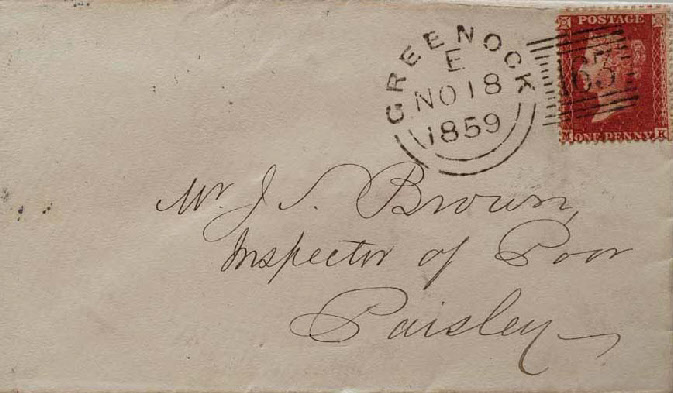 POSTAGE
ONE PENNY
GREENOCK
E
NO 18
1859
Mr J. S. Brown,
Inspector of Poor
Paisley